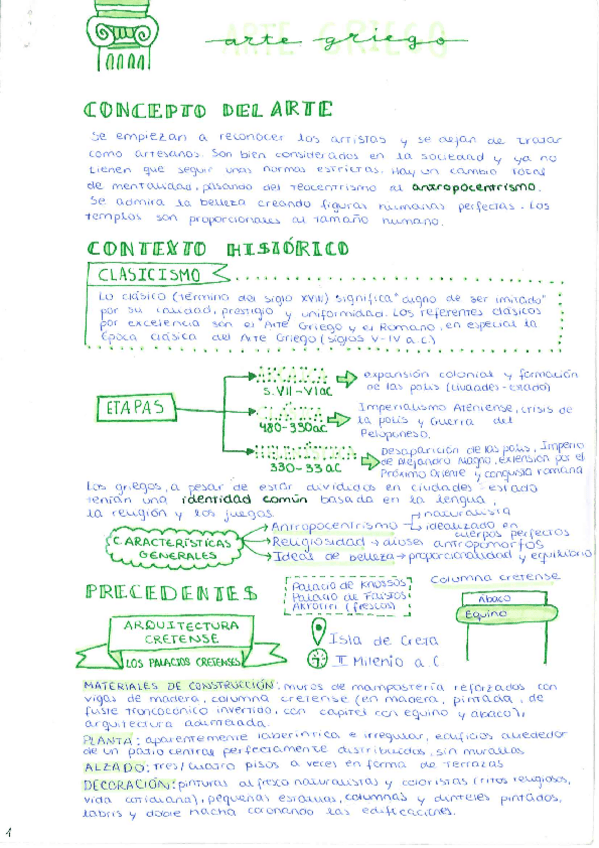 arte griego
CONCEPTO DEL ARTE
Se empiezan a reconocer los artistas y se dejan de tratar
como artesanos. Son bien considerados en la sociedad y ya no
tienen que seguir unas normas estrictas. Hay un cambio total
de mentalidad, pasando del teocentrismo al antropocentrismo.
Se admira la belleza creando figuras humanas perfectas. Los
templos son proporcionales al tamaño humano.
CONTEXTO HISTÓRICO
CLASICISMO
Lo clásico (término del siglo XVIII) significa "digno de ser imitado"
por su calidad, prestigio y uniformidad. Los referentes clásicos
por excelencia son el Arte Griego y el Romano, en especial la
Época clásica del Arte Griego (siglos V-IV a.C)
ETAPAS
S.VII-VI aC
expansión colonial y formación
de las polis (ciudades-estado)
480-330aC
Imperialismo Ateniense, crisis de
la polis y Guerra del
Peloponeso.
330-33 aC
Desaparición de las polis, Imperio
de Alejandro Magno, extensión por el
Próximo Oriente y conquista romana
Los griegos, a pesar de estar divididos en ciudades-estado
tenían una identidad común basada en la lengua,
la religión y los juegos
CARACTERÍSTICAS
GENERALES
Antropocentrismo
naturalista
idealizado en
cuerpos perfectos
Religiosidad → dioses antropomorfos
Ideas de belleza → proporcionalidad y equilibrio
PRECEDENTES
Palacio de Knossos
Palacio de Faistos
Akrotiri (frescos)
Columna cretense
Ábaco
Equino
ARQUITECTURA
CRETENSE
LOS PALACIOS CRETENSES
Isla de Creta
II Milenio a.C
MATERIALES DE CONSTRUCCIÓN: muros de mampostería reforzados con
vigas de madera, columna cretense (en madera, pintada, de
fuste troncocónico invertido, con capitel con equino y ábaco),
arquitectura adintelada.
PLANTA: aparentemente laberíntica e irregular, edificios alrededor
de un patio central perfectamente distribuidos, sin murallas
ALZADO: tres/cuatro pisos a veces en forma de terrazas
DECORACIÓN: pinturas al fresco naturalistas y coloristas (ritos religiosos,
vida cotidiana), pequeñas estatuas, columnas y dinteles pintados,
labris y doble hacha coronando las edificaciones.
1